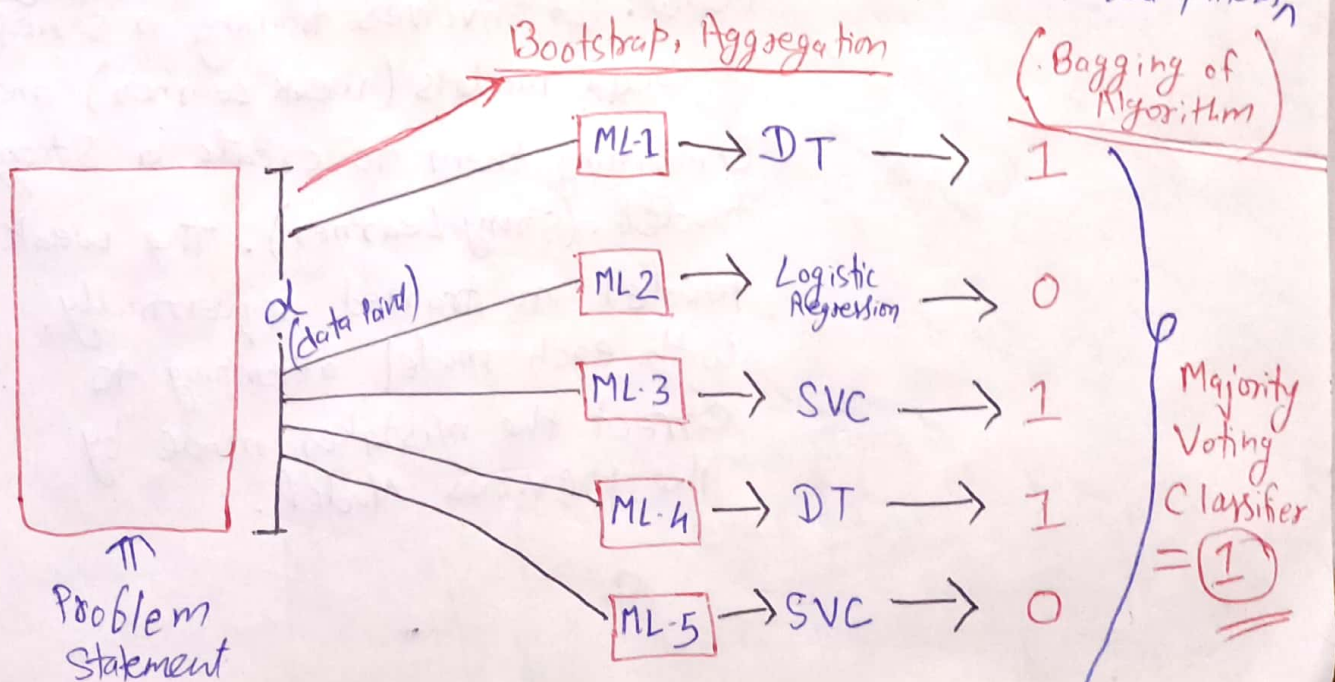 Bootstrap, Aggregation
(Bagging of
Algorithm)
ML-1 → DT → 1
ML2 → Logistic
Regression → 0
ML-3 → SVC → 1
ML-4 → DT → 1
ML-5 → SVC → 0
d
(data Point)
Problem
Statement
Majority
Voting
Classifier
= 1